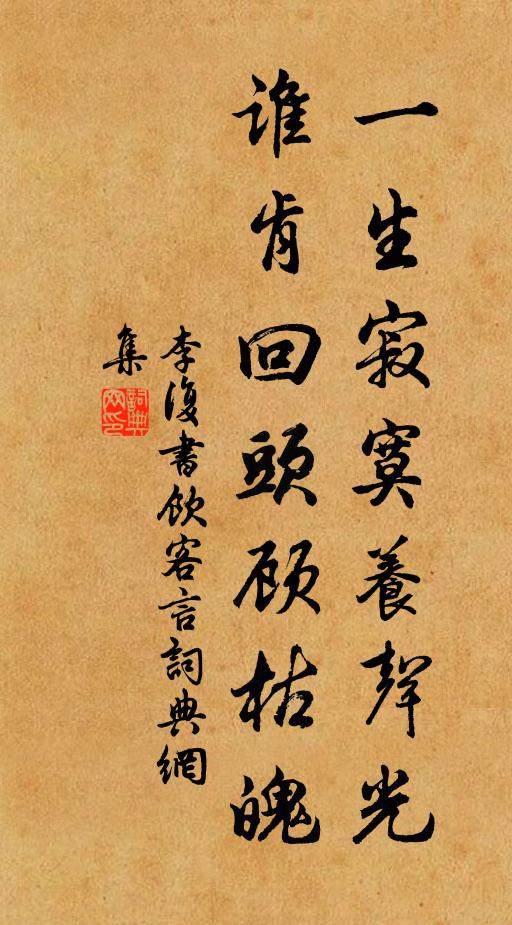 一生寂寞養聲光
誰肯回頭顧枯魄
李復書飲客言詞典網
集
詞典网印